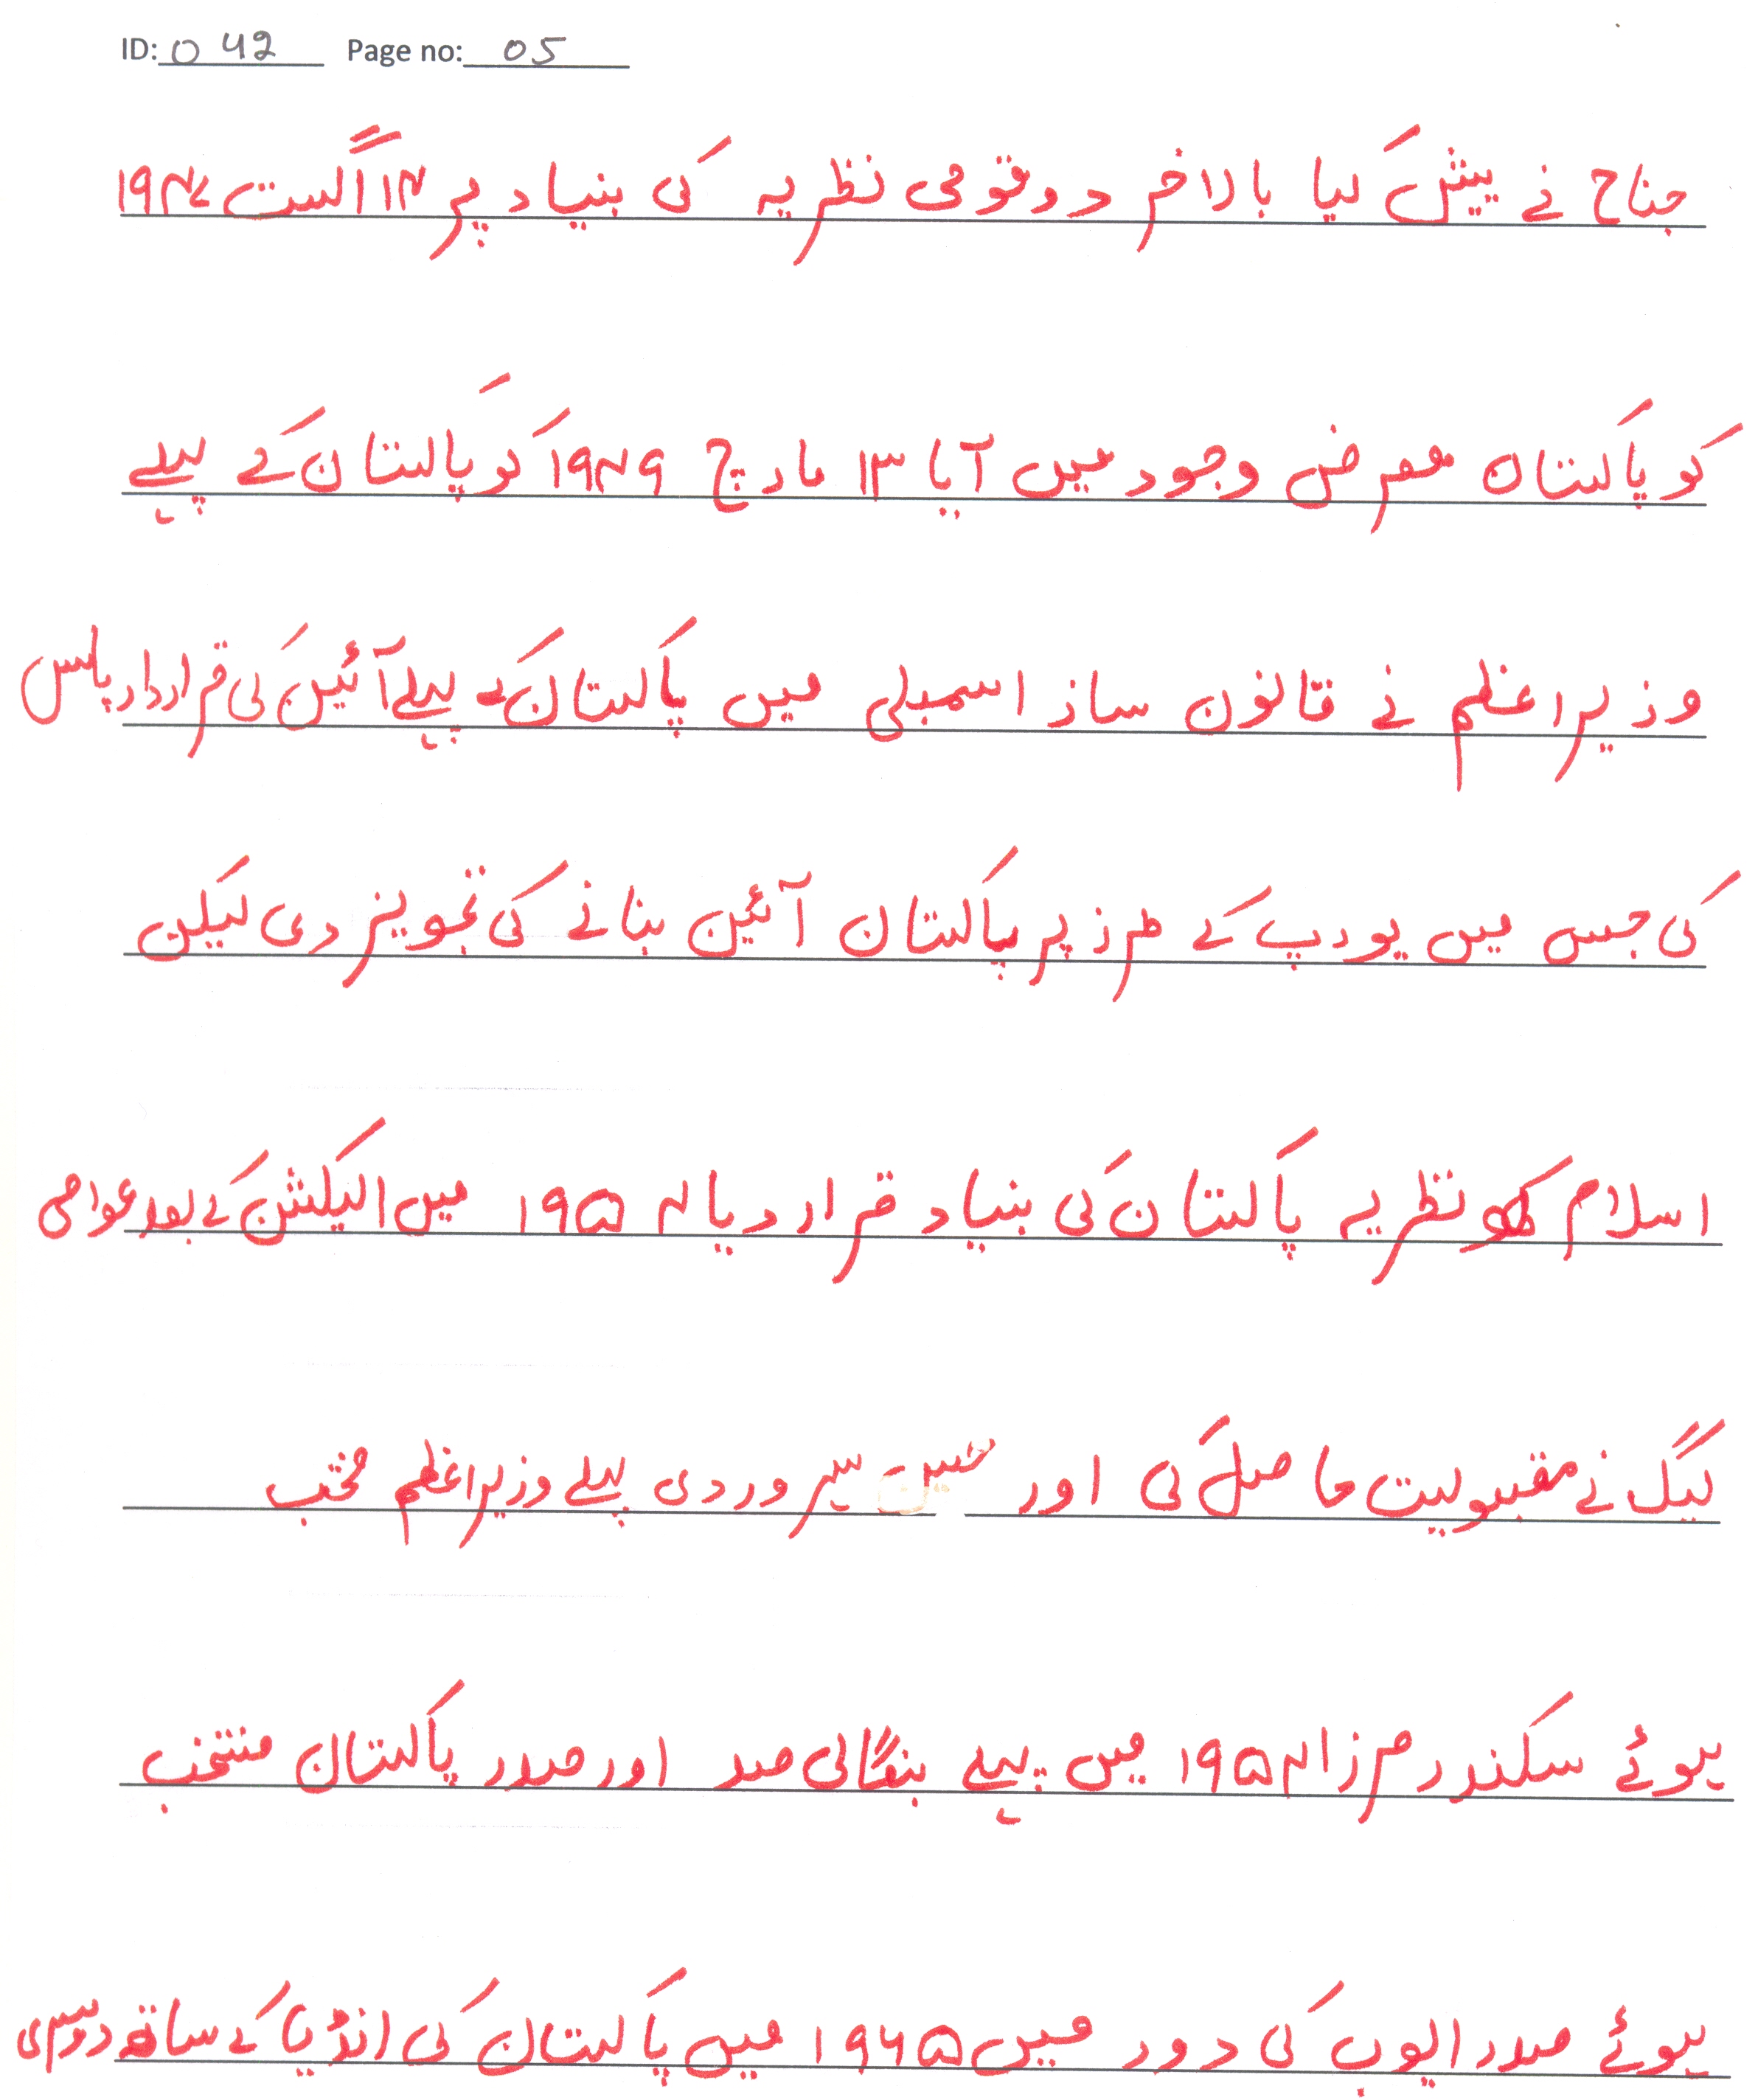 ID: 042 Page no: 05
جناح نے پیش کیا بالاخر دو قومی نظریہ کی بنیاد پر ۱۴ اگست ۱۹۴۷
کو پاکستان معرض وجود میں آیا ۱۳ مارچ ۱۹۴۹ کو پاکستان کے پہلے
وزیراعظم نے قانون ساز اسمبلی میں پاکستان کے پہلے آئین کی قرارداد پاس
کی جس میں یورپ کے طرز پر پاکستان آئین بنانے کی تجویز دی لیکن
اسلام کو نظریہ پاکستان کی بنیاد قرار دیا ۱۹۵۴ میں الیکشن کے بعد عوامی
لیگ نے مقبولیت حاصل کی اور حسین سہروردی پہلے وزیراعظم منتخب
ہوئے سکندر مرزا ۱۹۵۴ میں پہلے بنگالی صدر اور صدر پاکستان منتخب
ہوئے صدر ایوب کی دور میں ۱۹۶۵ میں پاکستان کی انڈیا کے ساتھ دوسری